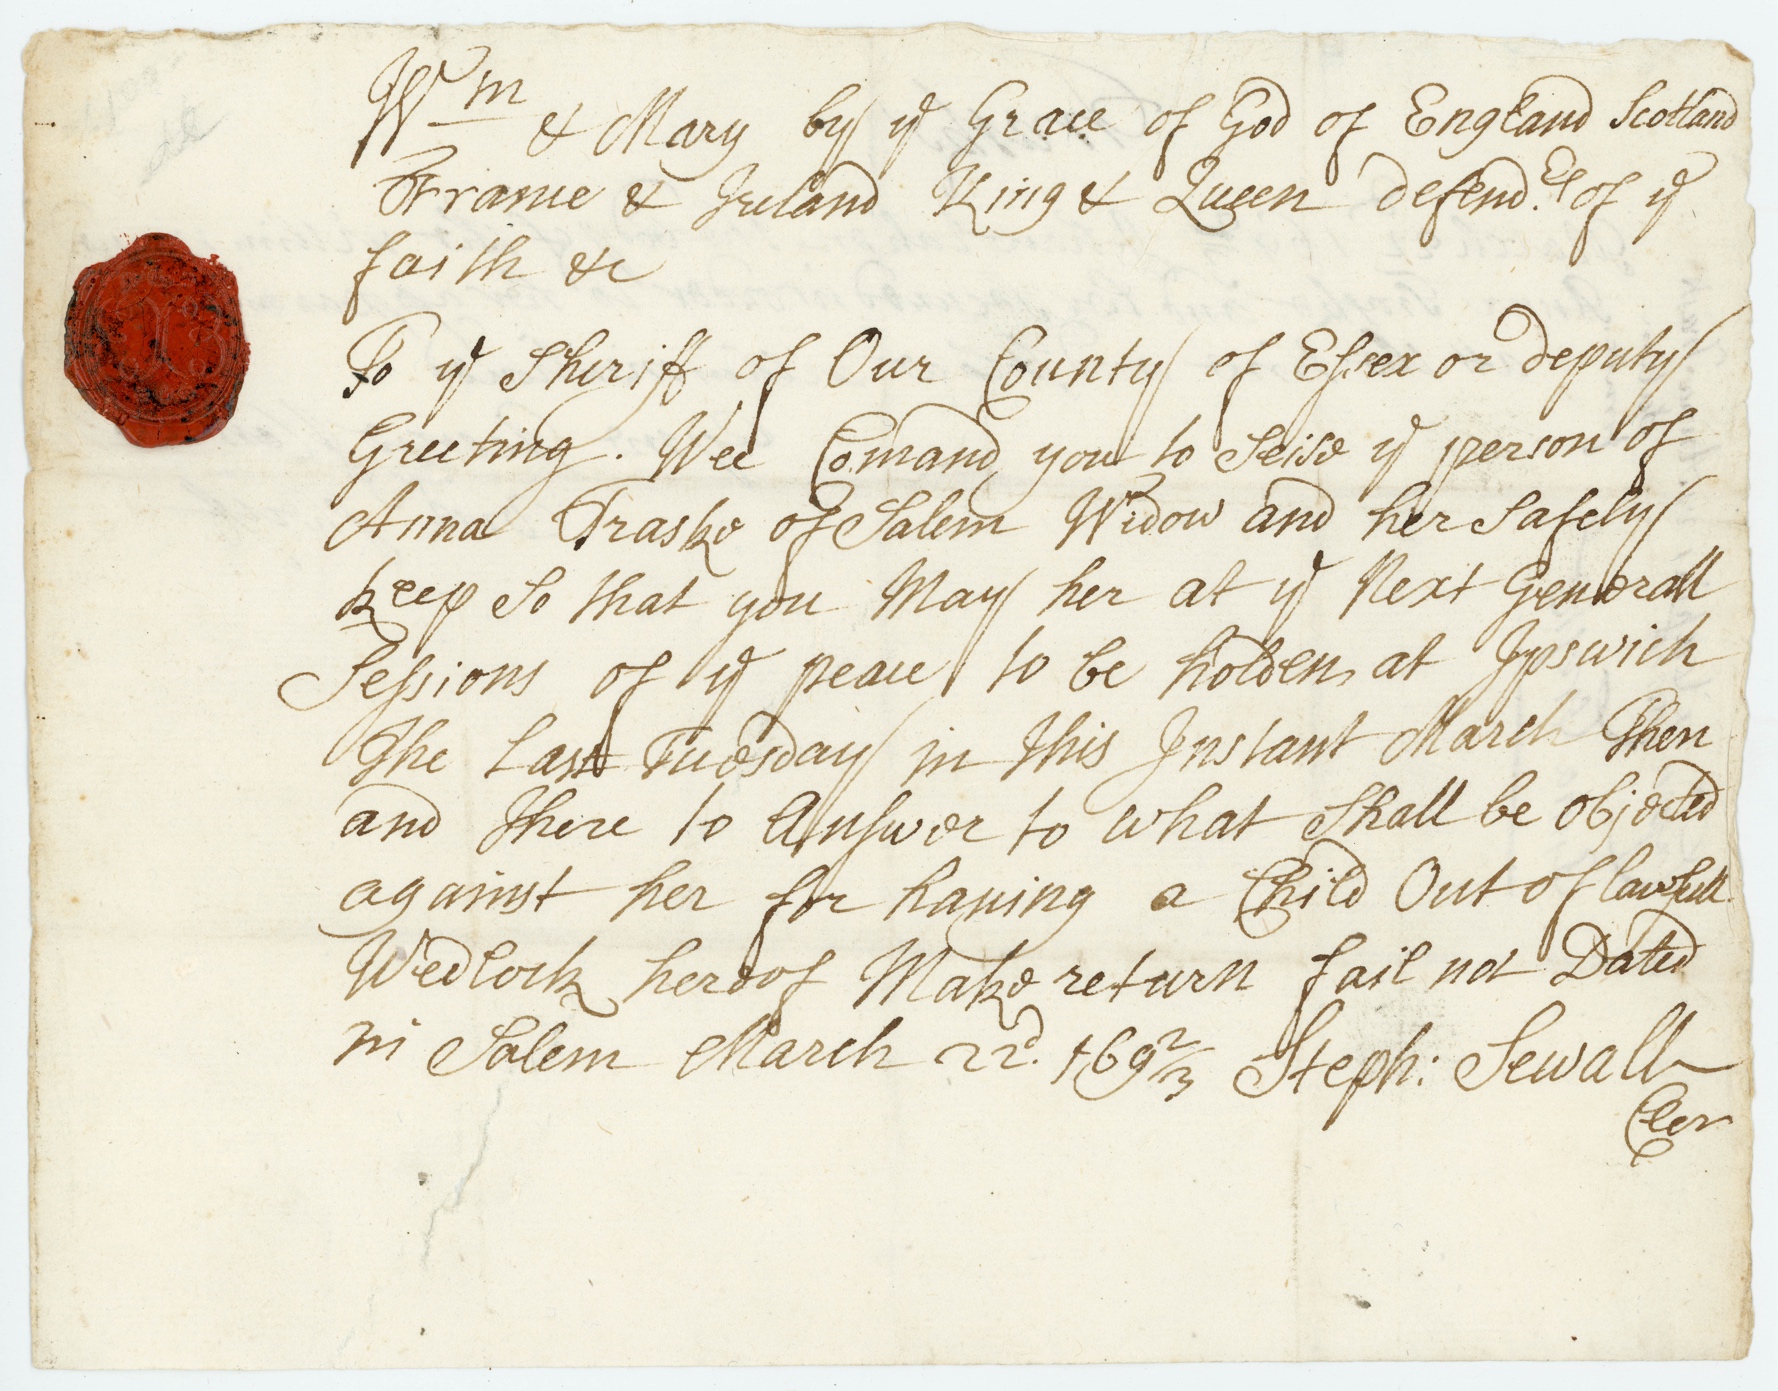 Wm & Mary by ye Grace of God of England Scotland
ffrance & Ireland King & Queen defend.rs of ye
faith &c
To ye Sheriff of Our County of Essex or deputy
Greeting. Wee Comand you to Seise ye person of
Anna Traske of Salem Widow and her Safely
keep So that you May her at ye Next Generall
Sessions of ye peace to be holden at Ipswich
The Last Tuesday in this Instant March Then
and there to Answer to what Shall be objected
against her for haueing a Child Out of lawfull
Wedlock hereof Make return fail not Dated
in Salem March 22d. 1692/3 Steph: Sewall
Cler